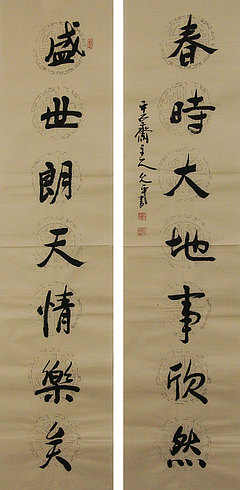 春時大地事欣然
盛世朗天情樂矣
主人